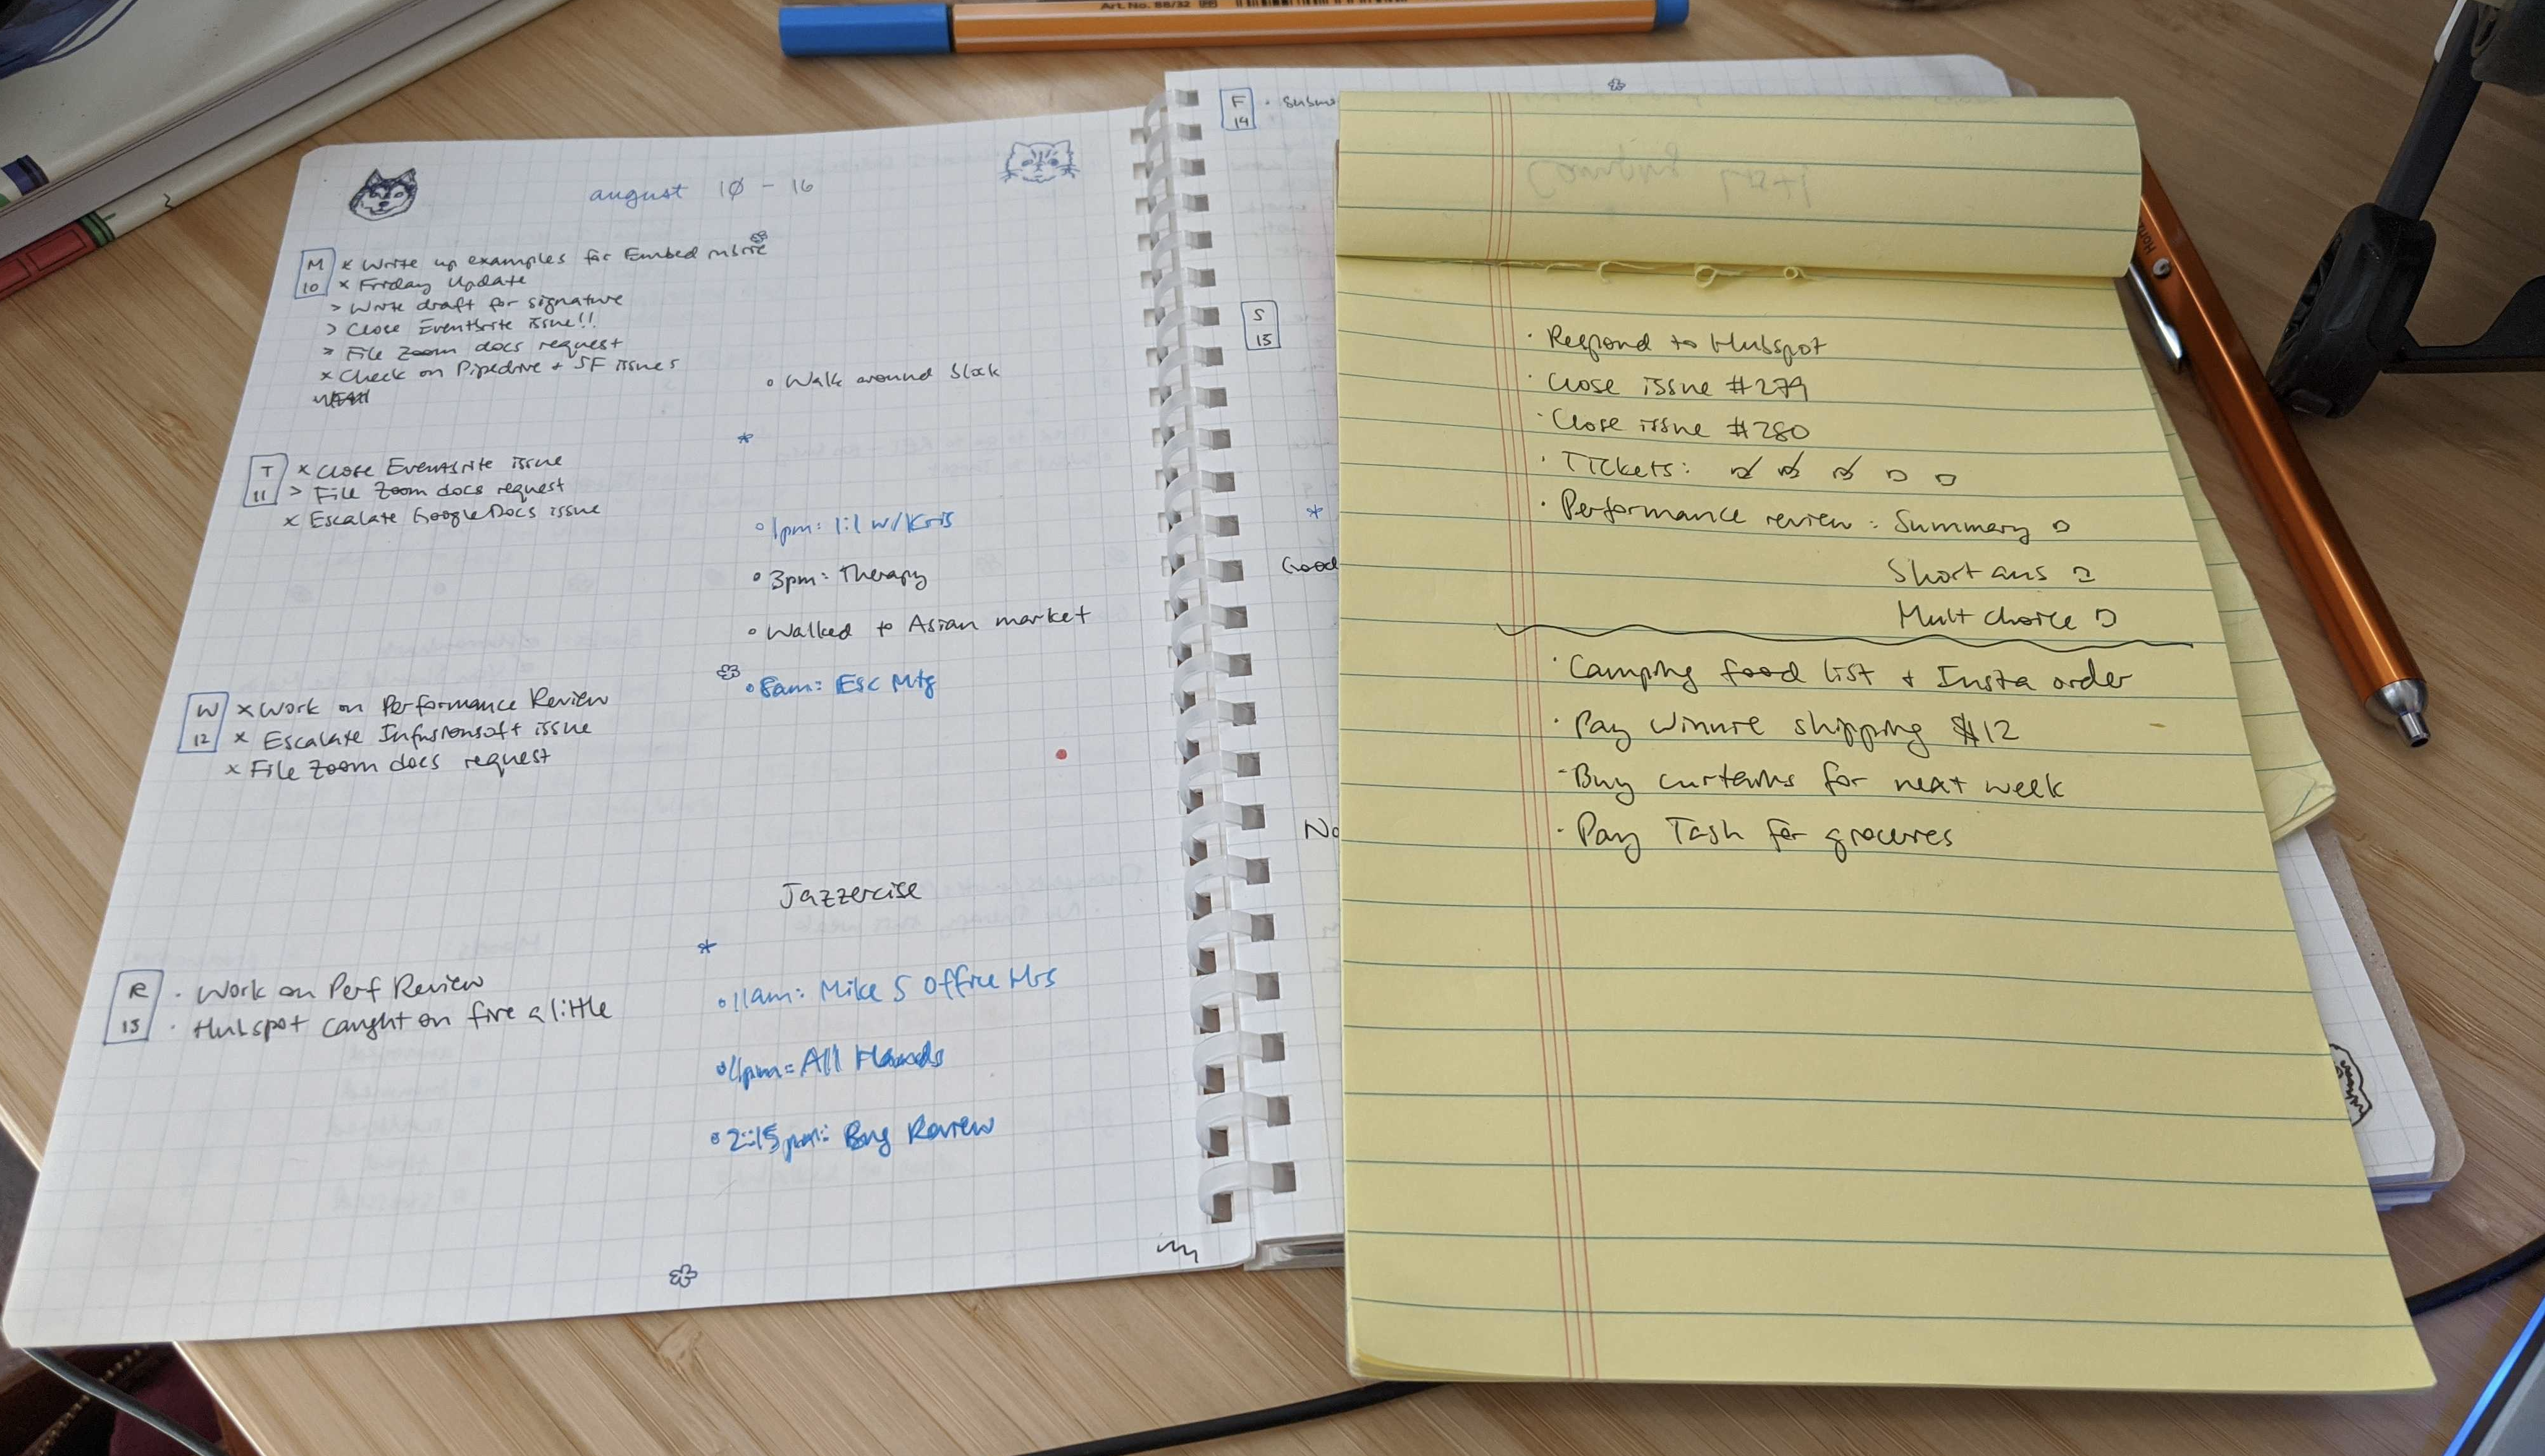 Art. No. 88/32
august 10 - 16
M
10
x Write up examples for Embed
x Friday Update
> Write draft for signature
> Close Eventbrite issue!!
> File Zoom docs request
x Check on Pipedrive + SF issues
o Walk around block
T
11
x Close Eventbrite issue
> File Zoom docs request
x Escalate Google Docs issue
o 1pm: 1:1 w/Kris
o 3pm: Therapy
o Walked to Asian market
W
12
x Work on Performance Review
x Escalate Infusionsoft issue
x File Zoom docs request
o 8am: Esc Mtg
Jazzercise
R
13
· Work on Perf Review
· Hubspot caught on fire a little
o 11am: Mike S Office Hrs
All Hands
o 2:15pm: Bug Review
F
14
S
15
Good
No
Camping List
· Respond to Hubspot
· Close issue #279
· Close issue #280
· Tickets:
· Performance review: Summary
Short ans
Mult choice
· Camping food list + Insta order
· Pay Winnie shipping $12
· Buy curtains for next week
· Pay Tash for groceries